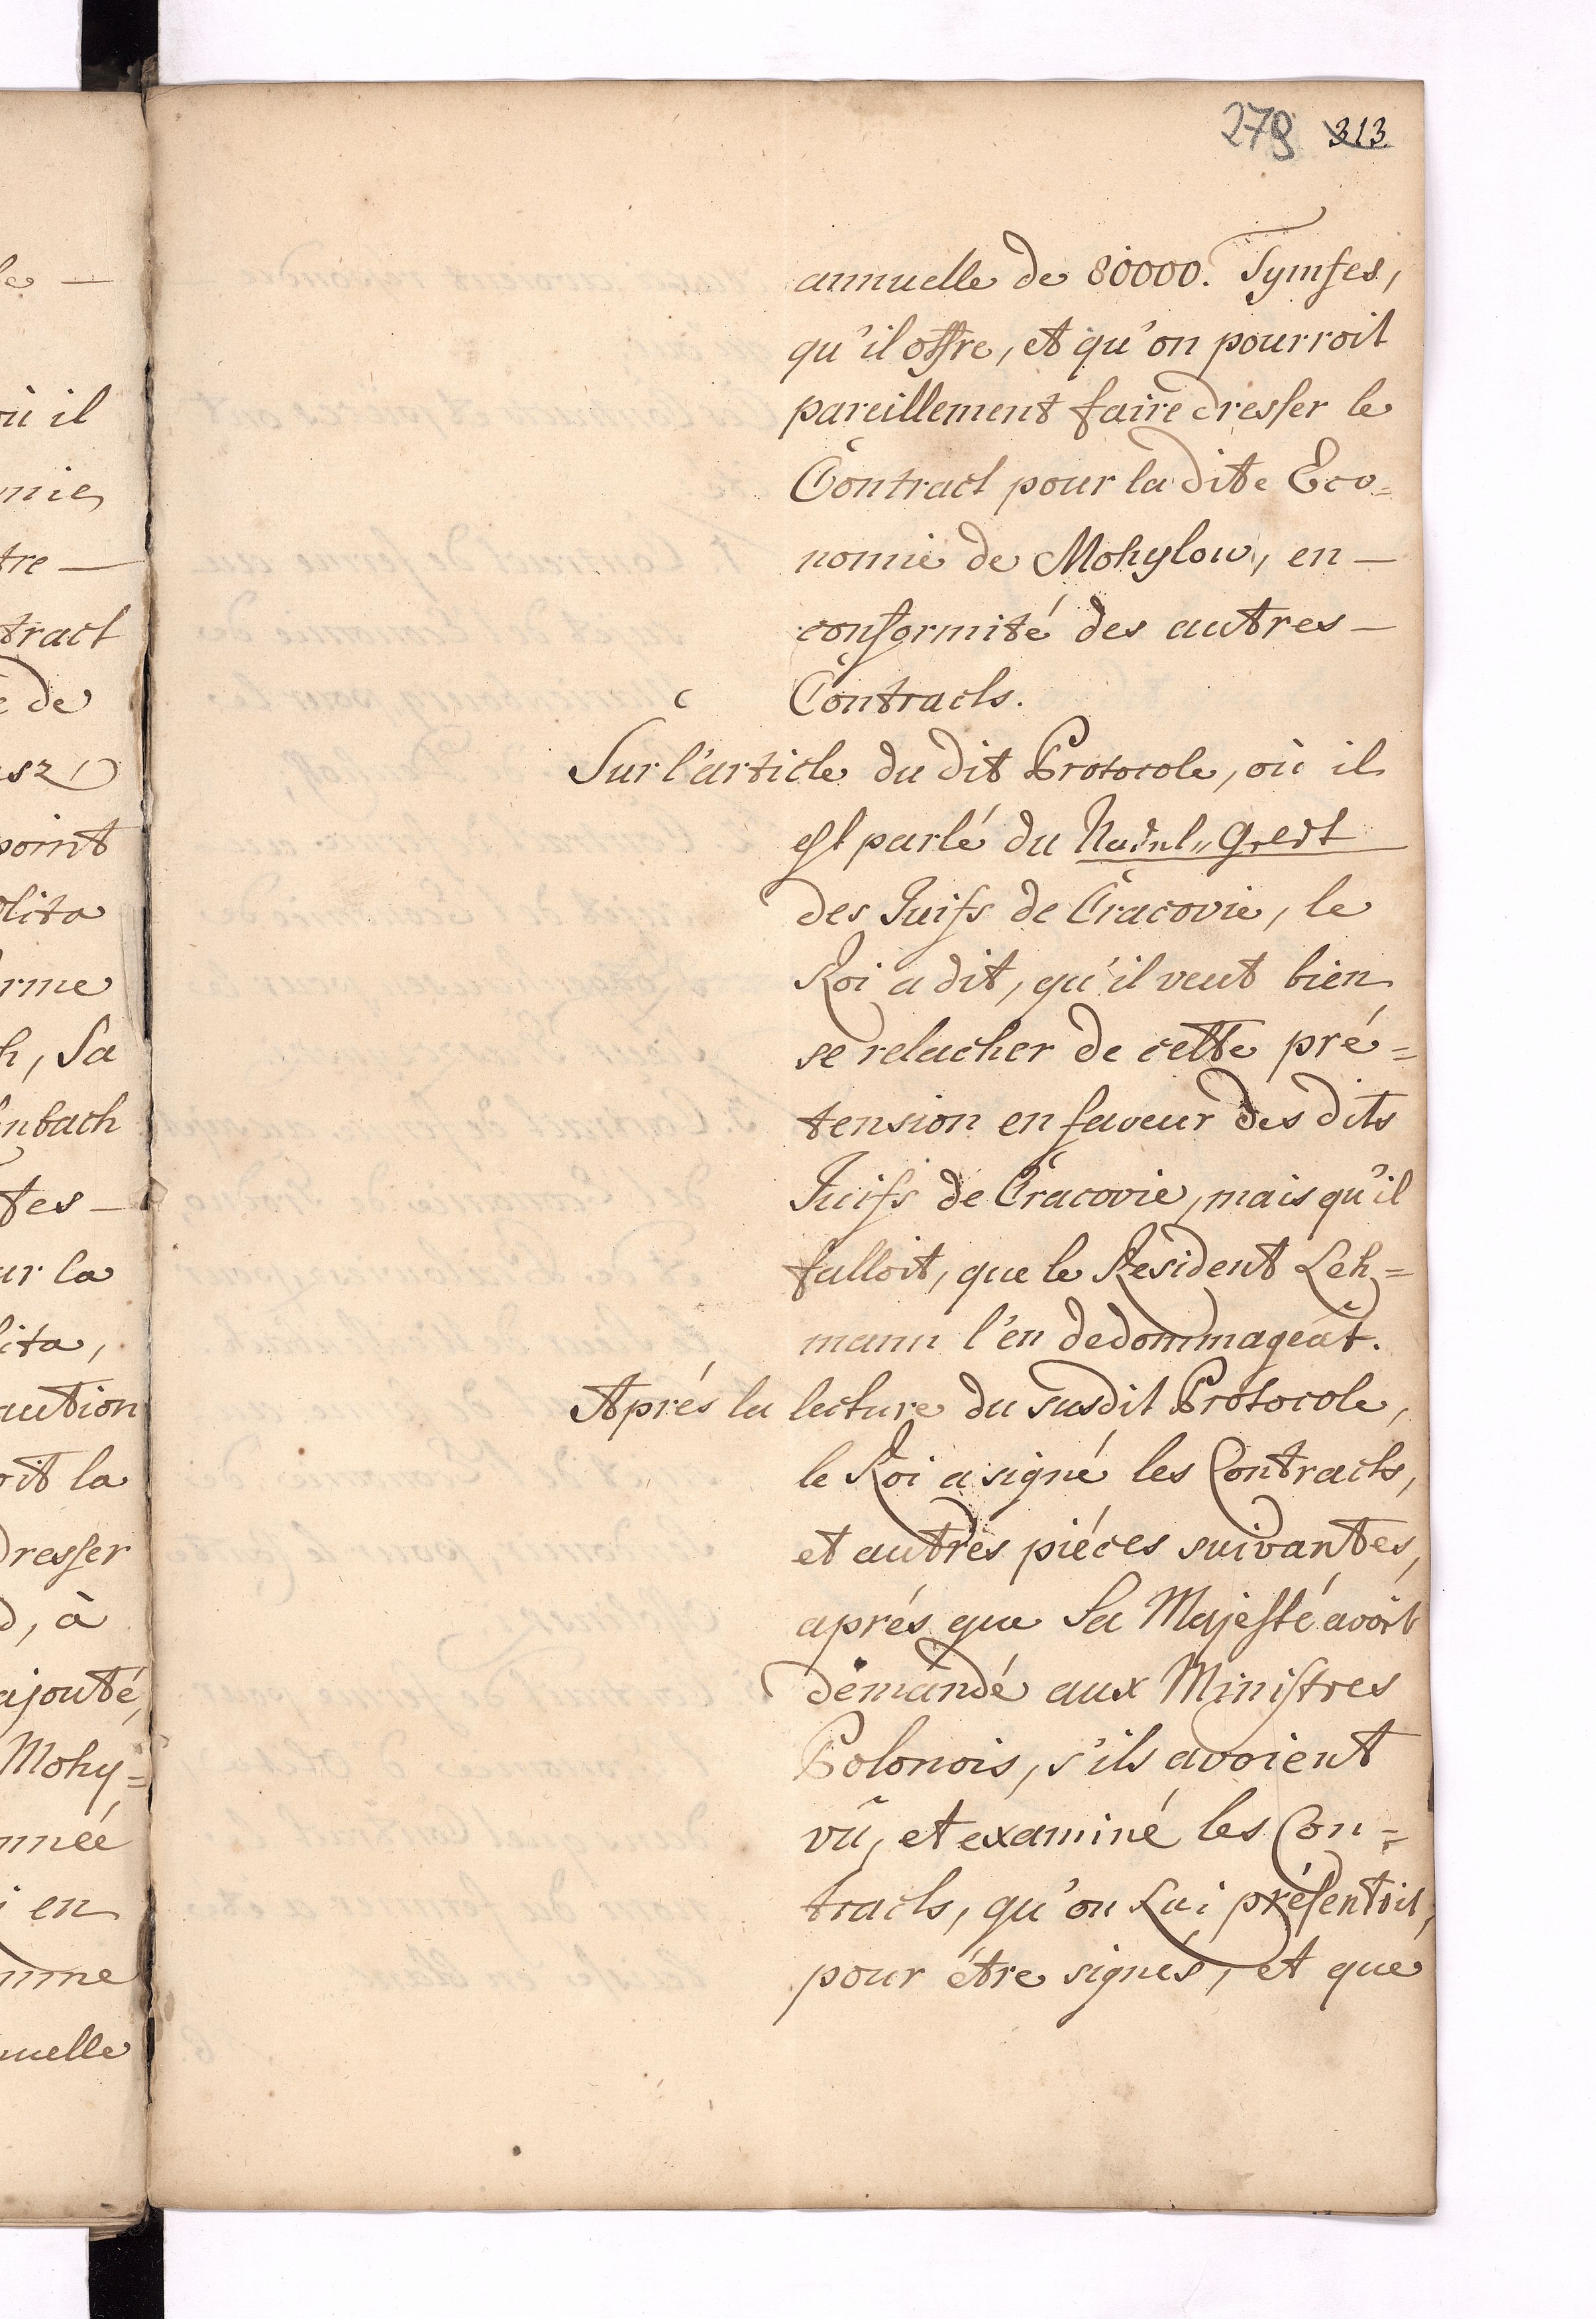 279 313.
annuelle de 80000. Tymfes,
qu'il offre, et qu'on pourroit
pareillement faire dresser le
Contract pour la dite Eco=
nomie de Mohylow, en —
conformité des autres —
Contracts.
Sur l'article du dit Protocole, où il
est parlé du
des Juifs de Cracovie, le
Roi a dit, qu'il veut bien
se relacher de cette pré=
tension en faveur des dits
Juifs de Cracovie, mais qu'il
falloit, que le Resident Leh=
mann l'en dedommageât.
Aprés la lecture du susdit Protocole,
le Roi a signé les Contracts,
et autres piéces suivantes,
aprés que Sa Majesté avoit
demandé aux Ministres
Polonois, s'ils avoient
vû, et examiné les Con=
tracts, qu'on Lui présentoit,
pour étre signés, et que
le —
où il
mie,
tre —
tract
de
asz
point
olita
rme
h, Sa
nbach
tes —
ur la
lita,
aution
oit la
dresser
d, à
ajouté,
Mohy=
nnée
i en
mme
nuelle